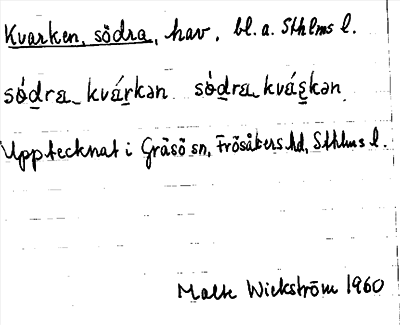 Kvarken, södra, hav, bl. a. Sthlms l.
sǿd̲ra kvár̲kən sǿd̲ra kvár̲kən
Upptecknat i Gräsö sn, Frösåkers hd, Sthlms l.
Malte Wickström 1960